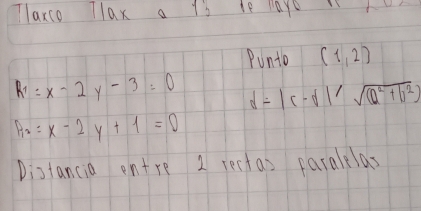 Tlaxco Tlax a 13 de Mayo
Punto (1,2)
R1 = x - 2y - 3 = 0
d = |c - d| / √(a² + b²)
R2 = x - 2y + 1 = 0
Distancia entre 2 rectas paralelas